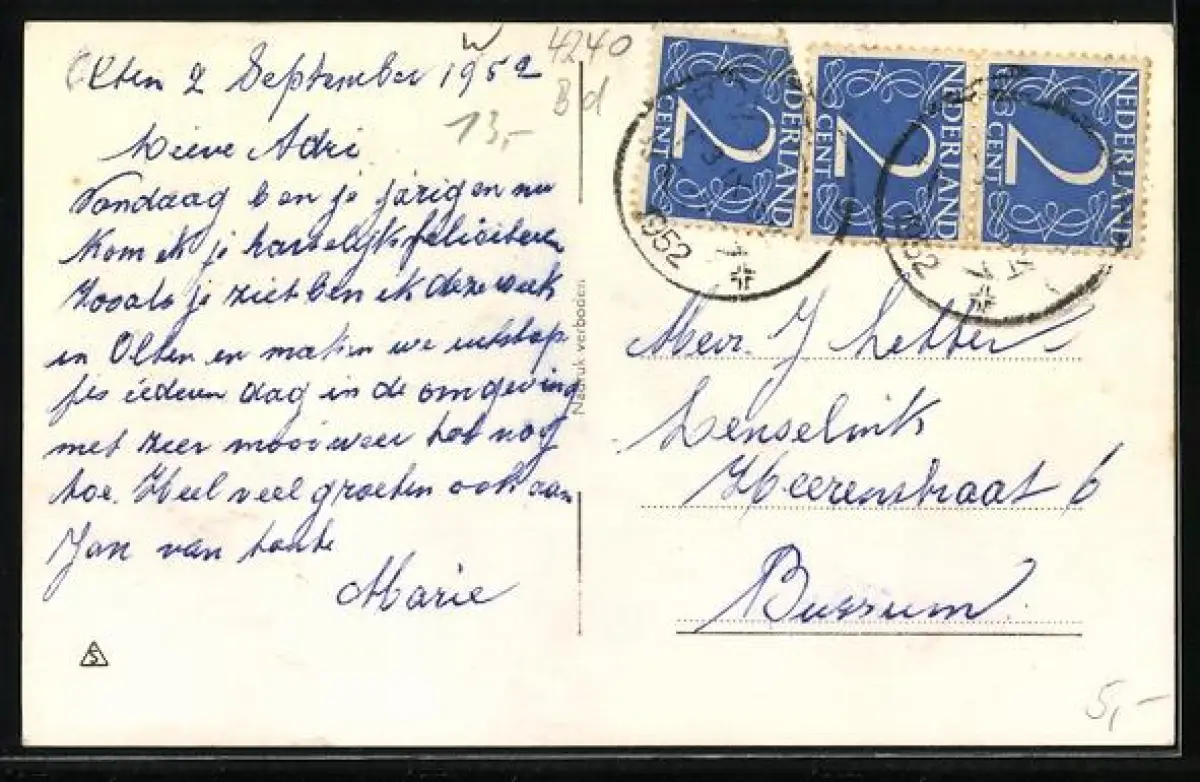 Olten 2 September 1952
Lieve Adri
Vandaag ben je jarig en nu
kom ik je hartelijk feliciteren
Zooals je ziet ben ik deze week
in Olten en maken we uitstap-
jes iederen dag in de omgeving
met zeer mooi weer tot nog
toe. Heel veel groeten ook aan
Jan van tante
Marie
S
W
4240
B d
13,-
Nadruk verboden
NEDERLAND
2
CENT
NEDERLAND
2
CENT
NEDERLAND
2
CENT
1952
1952
Mevr. J
Lenselink
Heerenstraat 6
Bussum.
5,-